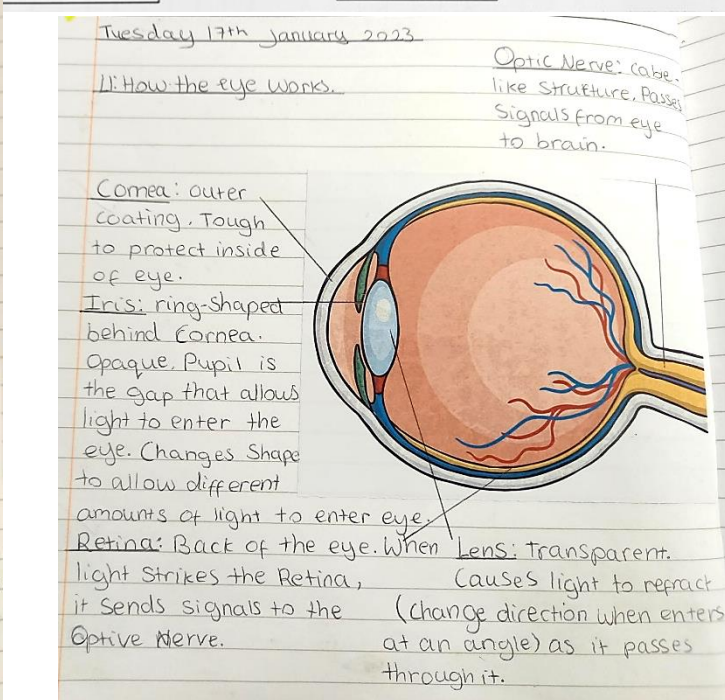 Tuesday 17th January 2023
LI: How the eye works.
Optic Nerve: cabe-
like Strukture. Passes
Signals from eye
to brain.
Cornea: outer
coating. Tough
to protect inside
of eye.
Iris: ring-shaped
behind Cornea.
Opaque. Pupil is
the gap that allows
light to enter the
eye. Changes Shape
to allow different
amounts of light to enter eye.
Retina: Back of the eye. When
light strikes the Retina,
it sends signals to the
Optive Nerve.
Lens: Transparent.
Causes light to refract
(change direction when enters
at an angle) as it passes
through it.